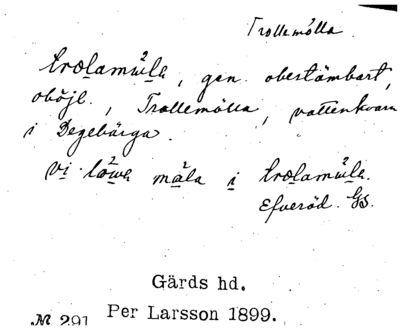 Trollemölla
trolamöla, gen. obestämbart,
oböjl., Trollemölla, vattenkvarn
i Degebärga.
vi löwa måla i trolamöla.
Efveröd. Gs.
Gärds hd.
№ 291 Per Larsson 1899.